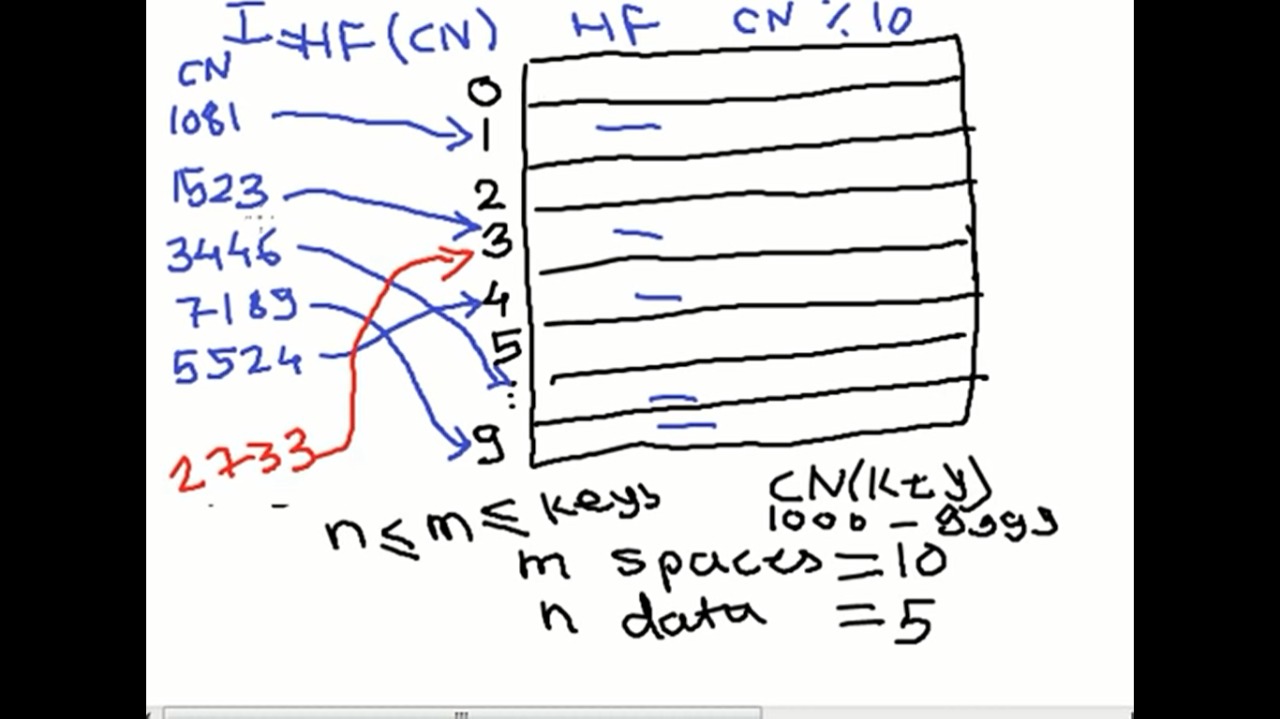 I=HF(CN) HF CN % 10
CN
1081
1523
3446
7189
5524
2733
0
1
2
3
4
5
⋮
9
n ≤ m ≤ keys
CN(key)
1000 - 9999
m spaces = 10
n data = 5